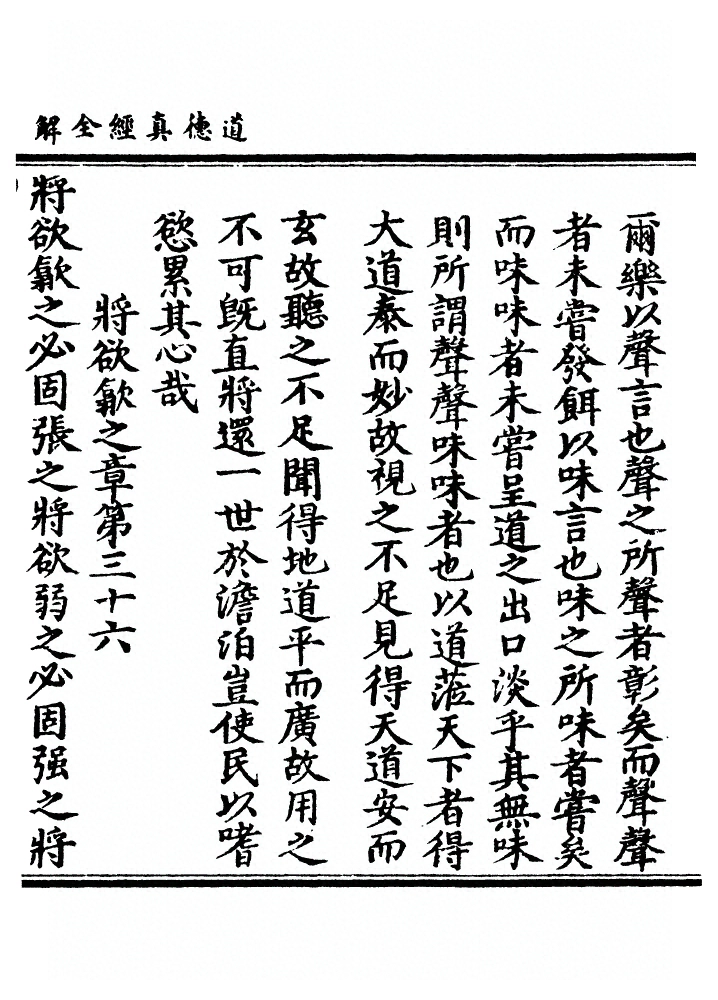 道德真經全解
爾樂以聲言也聲之所聲者彰矣而聲聲
者未嘗發餌以味言也味之所味者嘗矣
而味味者未嘗呈道之出口淡乎其無味
則所謂聲聲味味者也以道蒞天下者得
大道泰而妙故視之不足見得天道安而
玄故聽之不足聞得地道平而廣故用之
不可旣直將還一世於澹泊豈使民以嗜
慾累其心哉
將欲歙之章第三十六
將欲歙之必固張之將欲弱之必固强之將